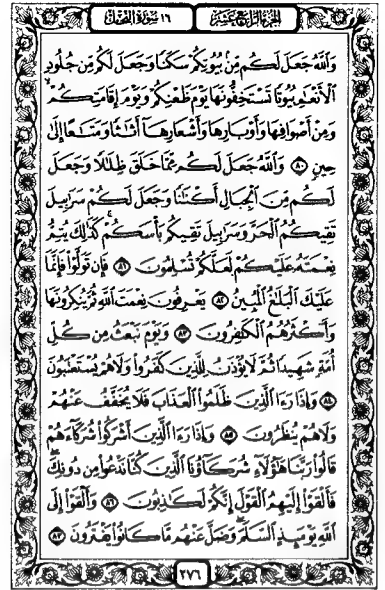 الجزء الرابع عشر ١٦ سورة النحل
وَاللَّهُ جَعَلَ لَكُم مِّنۢ بُيُوتِكُمْ سَكَنًا وَجَعَلَ لَكُم مِّن جُلُودِ
الْأَنْعَامِ بُيُوتًا تَسْتَخِفُّونَهَا يَوْمَ ظَعْنِكُمْ وَيَوْمَ إِقَامَتِكُمْ ۙ
وَمِنْ أَصْوَافِهَا وَأَوْبَارِهَا وَأَشْعَارِهَآ أَثَاثًا وَمَتَاعًا إِلَىٰ
حِينٍ ٨٠ وَاللَّهُ جَعَلَ لَكُم مِّمَّا خَلَقَ ظِلَالًا وَجَعَلَ
لَكُم مِّنَ الْجِبَالِ أَكْنَانًا وَجَعَلَ لَكُمْ سَرَابِيلَ
تَقِيكُمُ الْحَرَّ وَسَرَابِيلَ تَقِيكُم بَأْسَكُمْ ۚ كَذَٰلِكَ يُتِمُّ
نِعْمَتَهُ عَلَيْكُمْ لَعَلَّكُمْ تُسْلِمُونَ ٨١ فَإِن تَوَلَّوْا فَإِنَّمَا
عَلَيْكَ الْبَلَاغُ الْمُبِينُ ٨٢ يَعْرِفُونَ نِعْمَتَ اللَّهِ ثُمَّ يُنكِرُونَهَا
وَأَكْثَرُهُمُ الْكَافِرُونَ ٨٣ وَيَوْمَ نَبْعَثُ مِن كُلِّ
أُمَّةٍ شَهِيدًا ثُمَّ لَا يُؤْذَنُ لِلَّذِينَ كَفَرُوا وَلَا هُمْ يُسْتَعْتَبُونَ
٨٤ وَإِذَا رَءَا الَّذِينَ ظَلَمُوا الْعَذَابَ فَلَا يُخَفَّفُ عَنْهُمْ
وَلَا هُمْ يُنظَرُونَ ٨٥ وَإِذَا رَءَا الَّذِينَ أَشْرَكُوا شُرَكَآءَهُمْ
قَالُوا رَبَّنَا هَٰٓؤُلَآءِ شُرَكَآؤُنَا الَّذِينَ كُنَّا نَدْعُوا مِن دُونِكَ ۖ
فَأَلْقَوْا إِلَيْهِمُ الْقَوْلَ إِنَّكُمْ لَكَاذِبُونَ ٨٦ وَأَلْقَوْا إِلَى
اللَّهِ يَوْمَئِذٍ السَّلَمَ ۖ وَضَلَّ عَنْهُم مَّا كَانُوا يَفْتَرُونَ ٨٧
٢٧٦